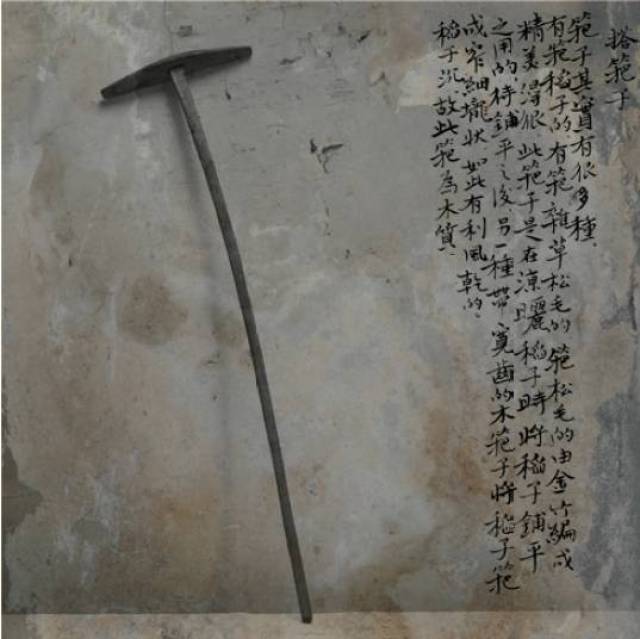 搭笵子
笵子其實有很多種、
有笵稻子的有笵雜草松毛的笵松毛的由金竹編成
精美得很此笵子是在涼曬稻子時將稻子鋪平
之用的待鋪平之後另一種帶寬齒的木笵子將稻子笵
成窄細壠狀如此有利風乾的、
稻子沉故此笵為木質、